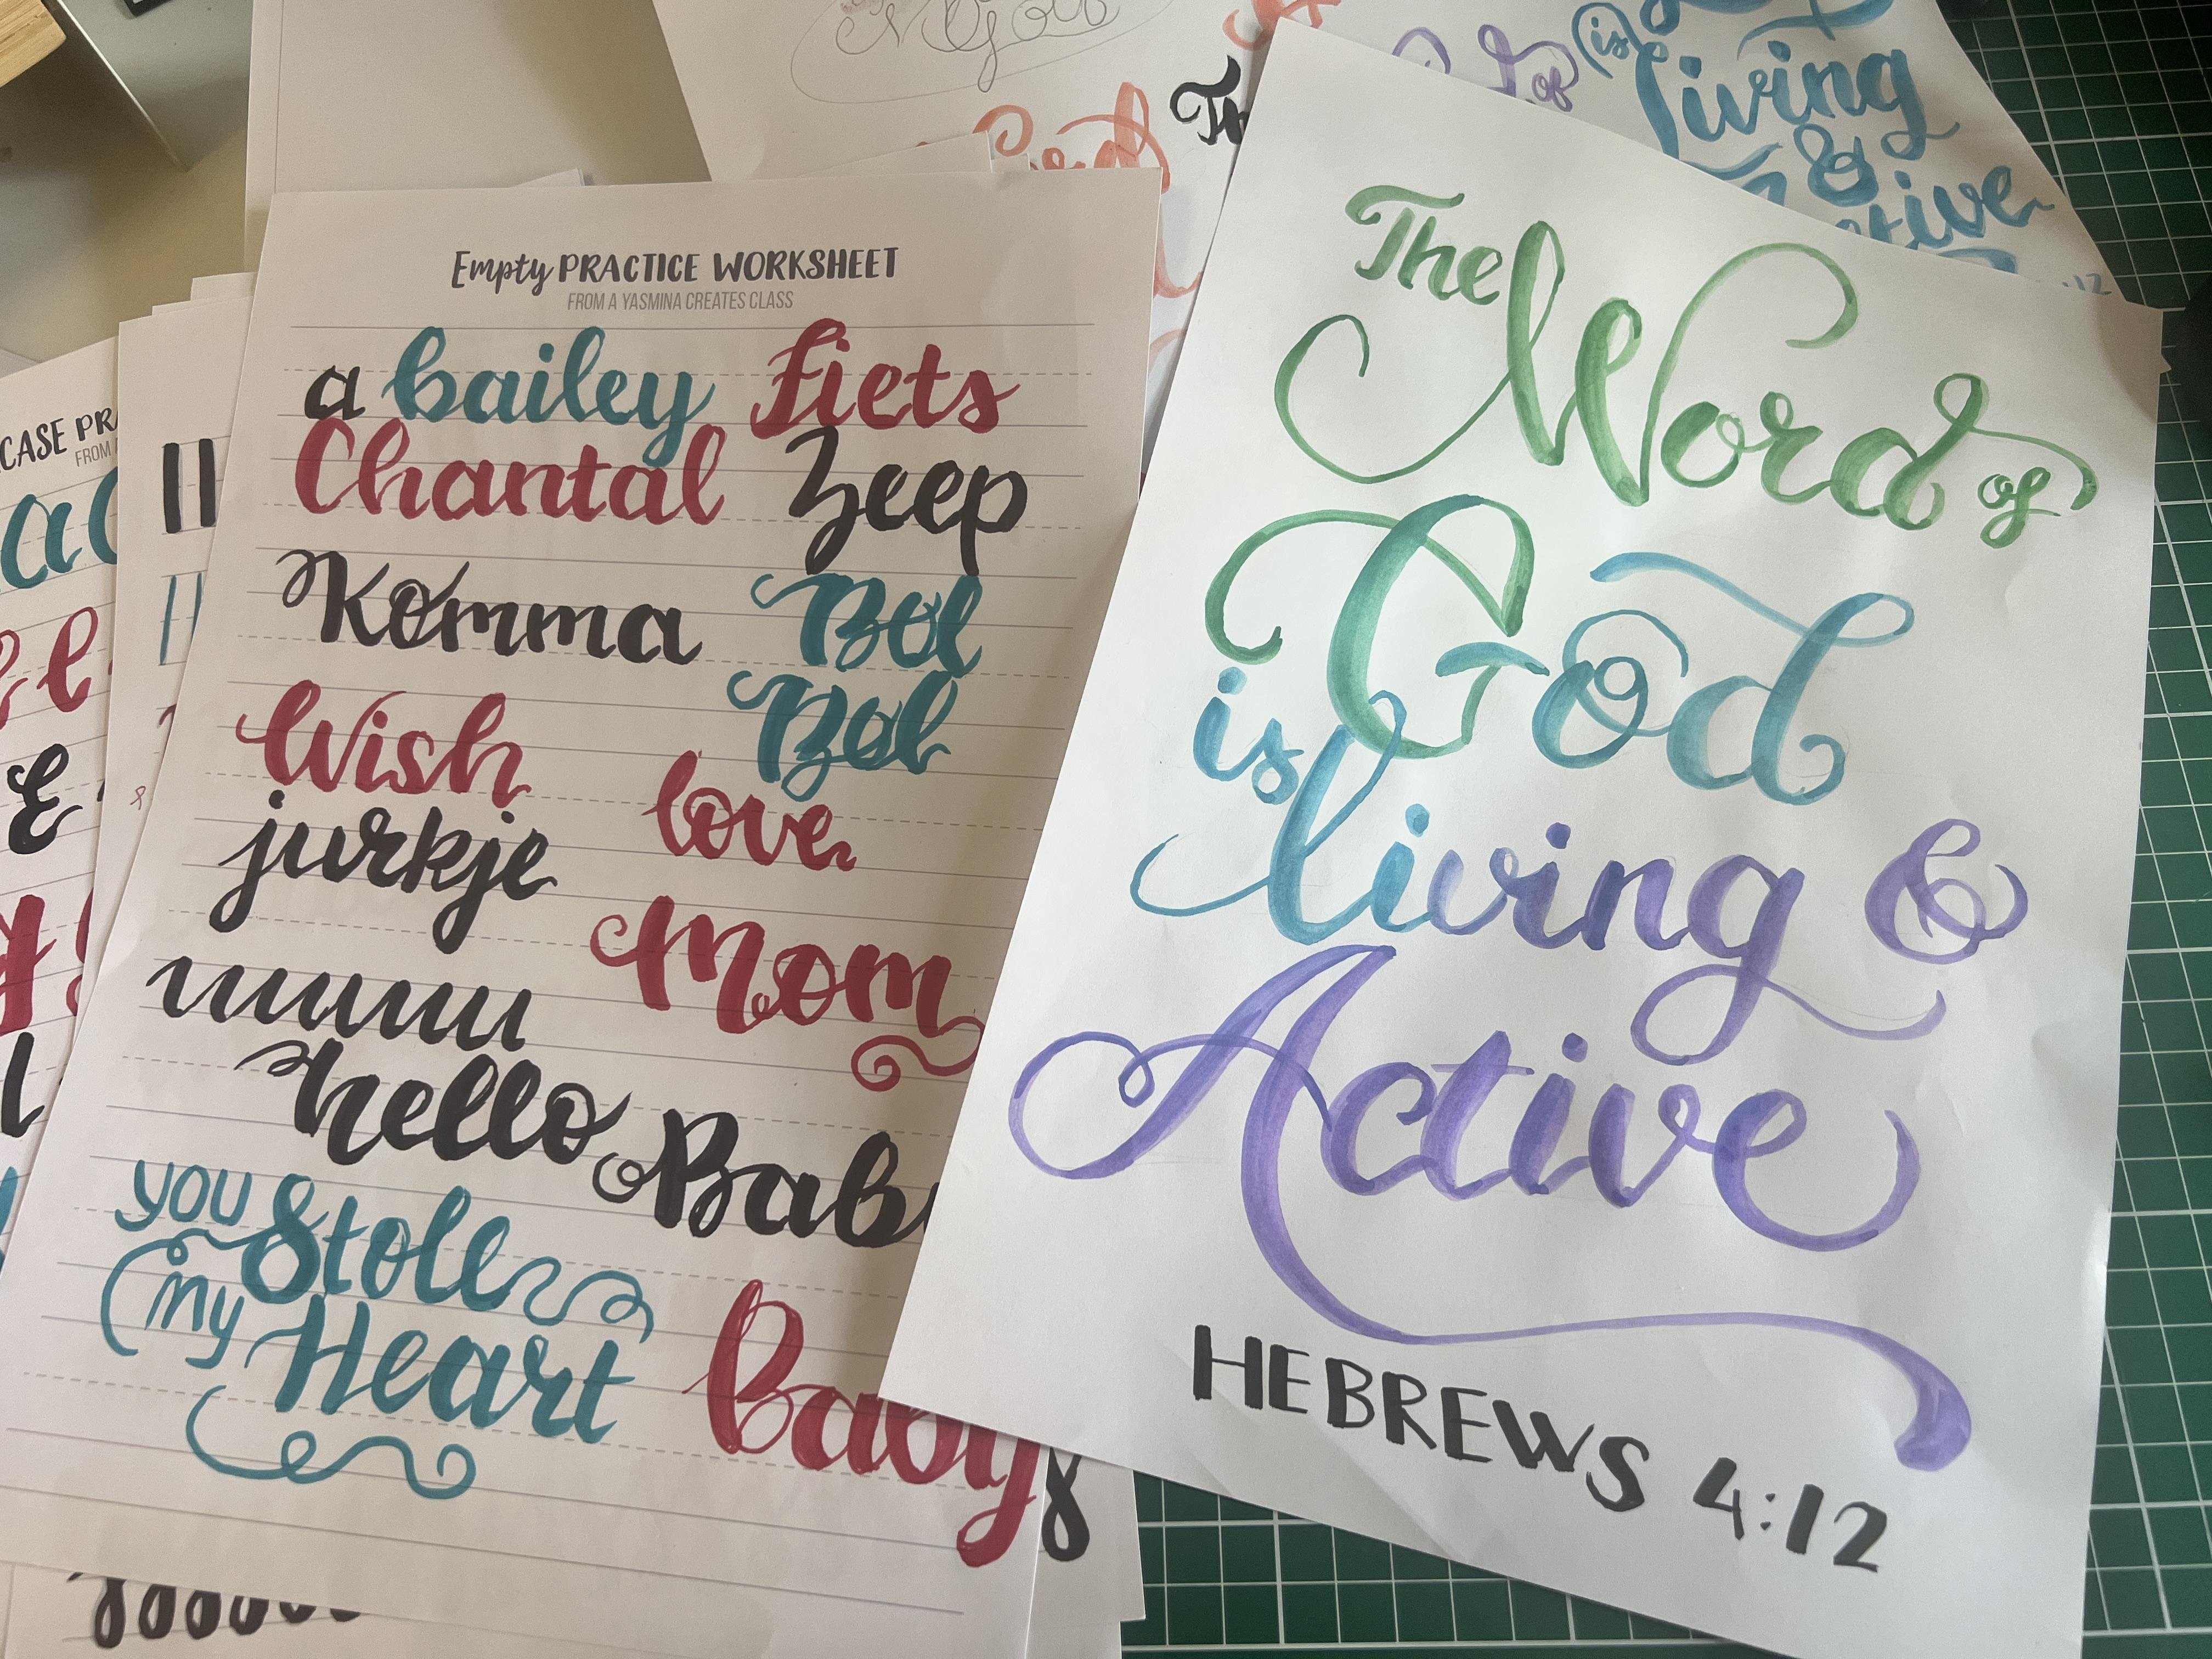 Empty PRACTICE WORKSHEET
FROM A YASMINA CREATES CLASS
a bailey fiets
Chantal Zeep
Komma Bol
Wish Bob
jurkje love
Mom
hello
you Stole
my Heart
baby
The Word of
God
is living &
Active
HEBREWS 4:12
is
living
&